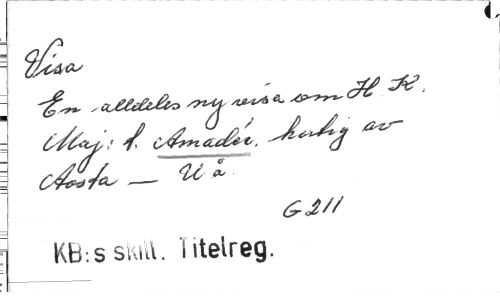 Visa
En alldeles ny visa om H. K.
Maj: t. Amadér. hertig av
Aosta — U å.
G 211
KB:s skill. Titelreg.